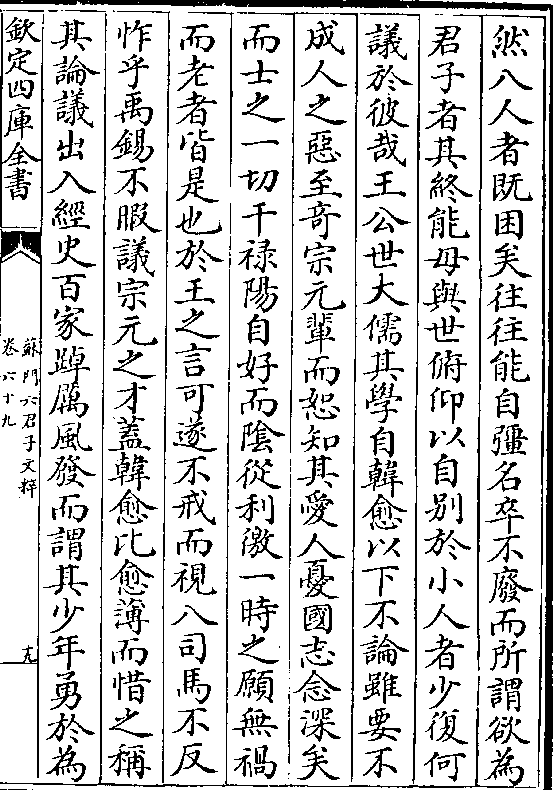 然八人者既困矣往往能自彊名卒不廢而所謂欲為
君子者其終能毋與世俯仰以自别於小人者少復何
議於彼哉王公世大儒其學自韓愈以下不論雖要不
成人之惡至竒宗元輩而恕知其愛人憂國志念深矣
而士之一切干禄陽自好而陰從利徼一時之願無禍
而老者皆是也於王之言可遂不戒而視八司馬不反
怍乎禹錫不暇議宗元之才蓋韓愈比愈薄而惜之稱
其論議出入經史百家踔厲風發而謂其少年勇於為
欽定四庫全書
蘇門六君子文粹
卷六十九
十九